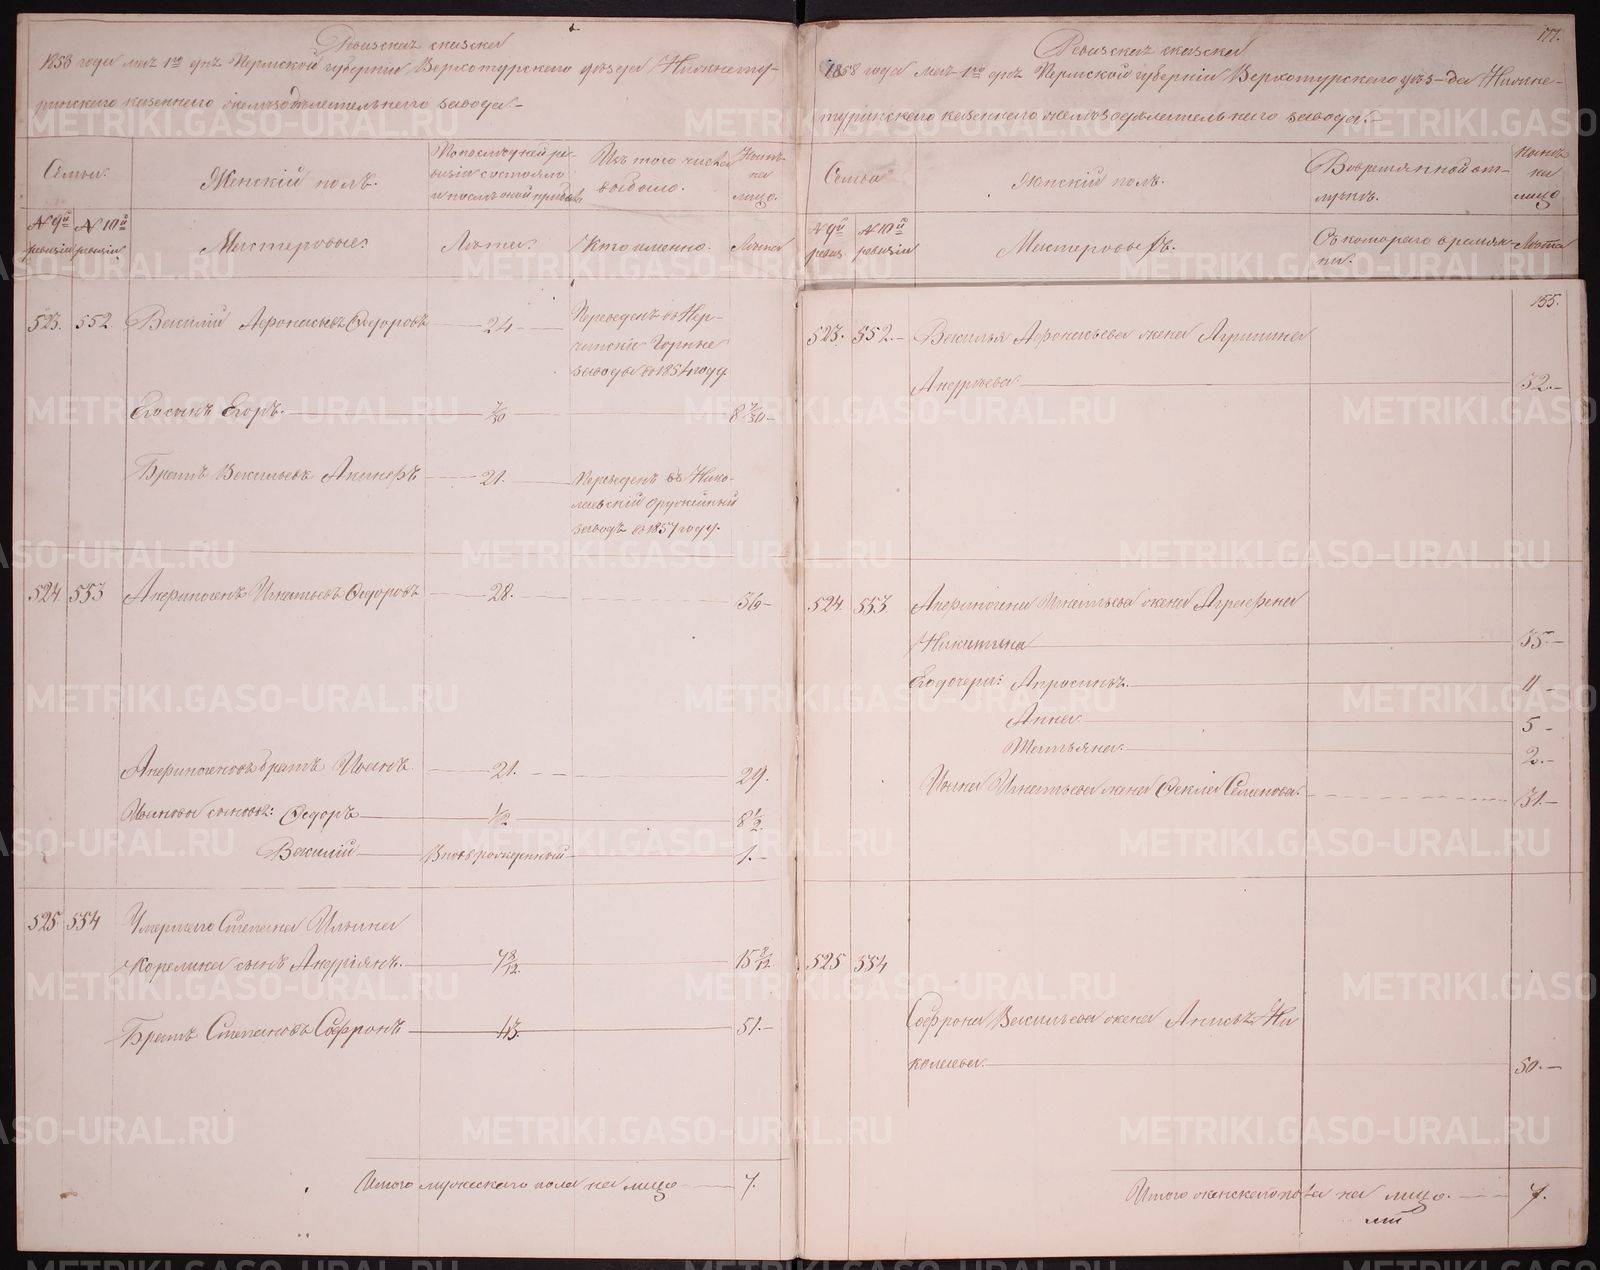 Ревизская сказка
1858 года мая 1го дня Пермской губернии Верхотурского уѣзда Нижнету-
ринского казенного желѣзодѣлательного завода.-
Семьи.
Женскій полъ.
По последней ре-
визіи состояло
и послѣ оной прибыло
Изъ того числа
выбыло.
Нынѣ
на
лицо.
№ 9й
ревизіи
№ 10й
ревизіи
Мастеровые:
Лѣта:
Кто именно.
Лѣта
523. 552 Василій Афонасьевъ Ѳедоровъ 24 Переведенъ въ Нер-
чинскіе Горные
заводы въ 1854 году.
Его сынъ Егоръ. 7/30 8 7/30
Братъ Васильевъ 21. Переведенъ въ Нико-
лаевскій оружейный
заводъ въ 1857 году.
524. 553 Аѳиногенъ Игнатьевъ Ѳедоровъ 28. 36
Аѳиногеновъ братъ Иванъ 21. 29.
Ивановы сыновья: Ѳедоръ 1/2 8 1/2
Василій вновьрожденный 1.
525 554 Умершаго Степана Ильина
Корелина сынъ Андріянъ. 7 8/12. 15 8/12
Братъ Степановъ Софронъ 43. 51.
Итого мужескаго пола на лицо 7.
177.
Ревизская сказка
1858 года мая 1го дня Пермской губерніи Верхотурского уѣз-да Нижне-
туринского казенного желѣзодѣлательного завода.-
Семьи
Женскій полъ.
Вовременной от-
лучкѣ.
Нынѣ
на
лицо
№ 9й
ревиз.
№ 10й
ревизіи
Мастеровыхъ.
Съ котораго време-
ни.
Лѣта
155.
523. 552. Василья Афонасьева жена Агрипина
Андреева 32.
524 553 Аѳиногена Игнатьева жена Аграфена
Никитина 35.
Его дочери: Апросинья. 11
Анна 5
Татьяна. 2.
Ивана Игнатьева жена Ѳекла Семенова. 31.
525 554
Софрона Васильева жена Анисья Ни
колаева. 50.
Итого женского пола на лицо. 7.
METRIKI.GASO-URAL.RU